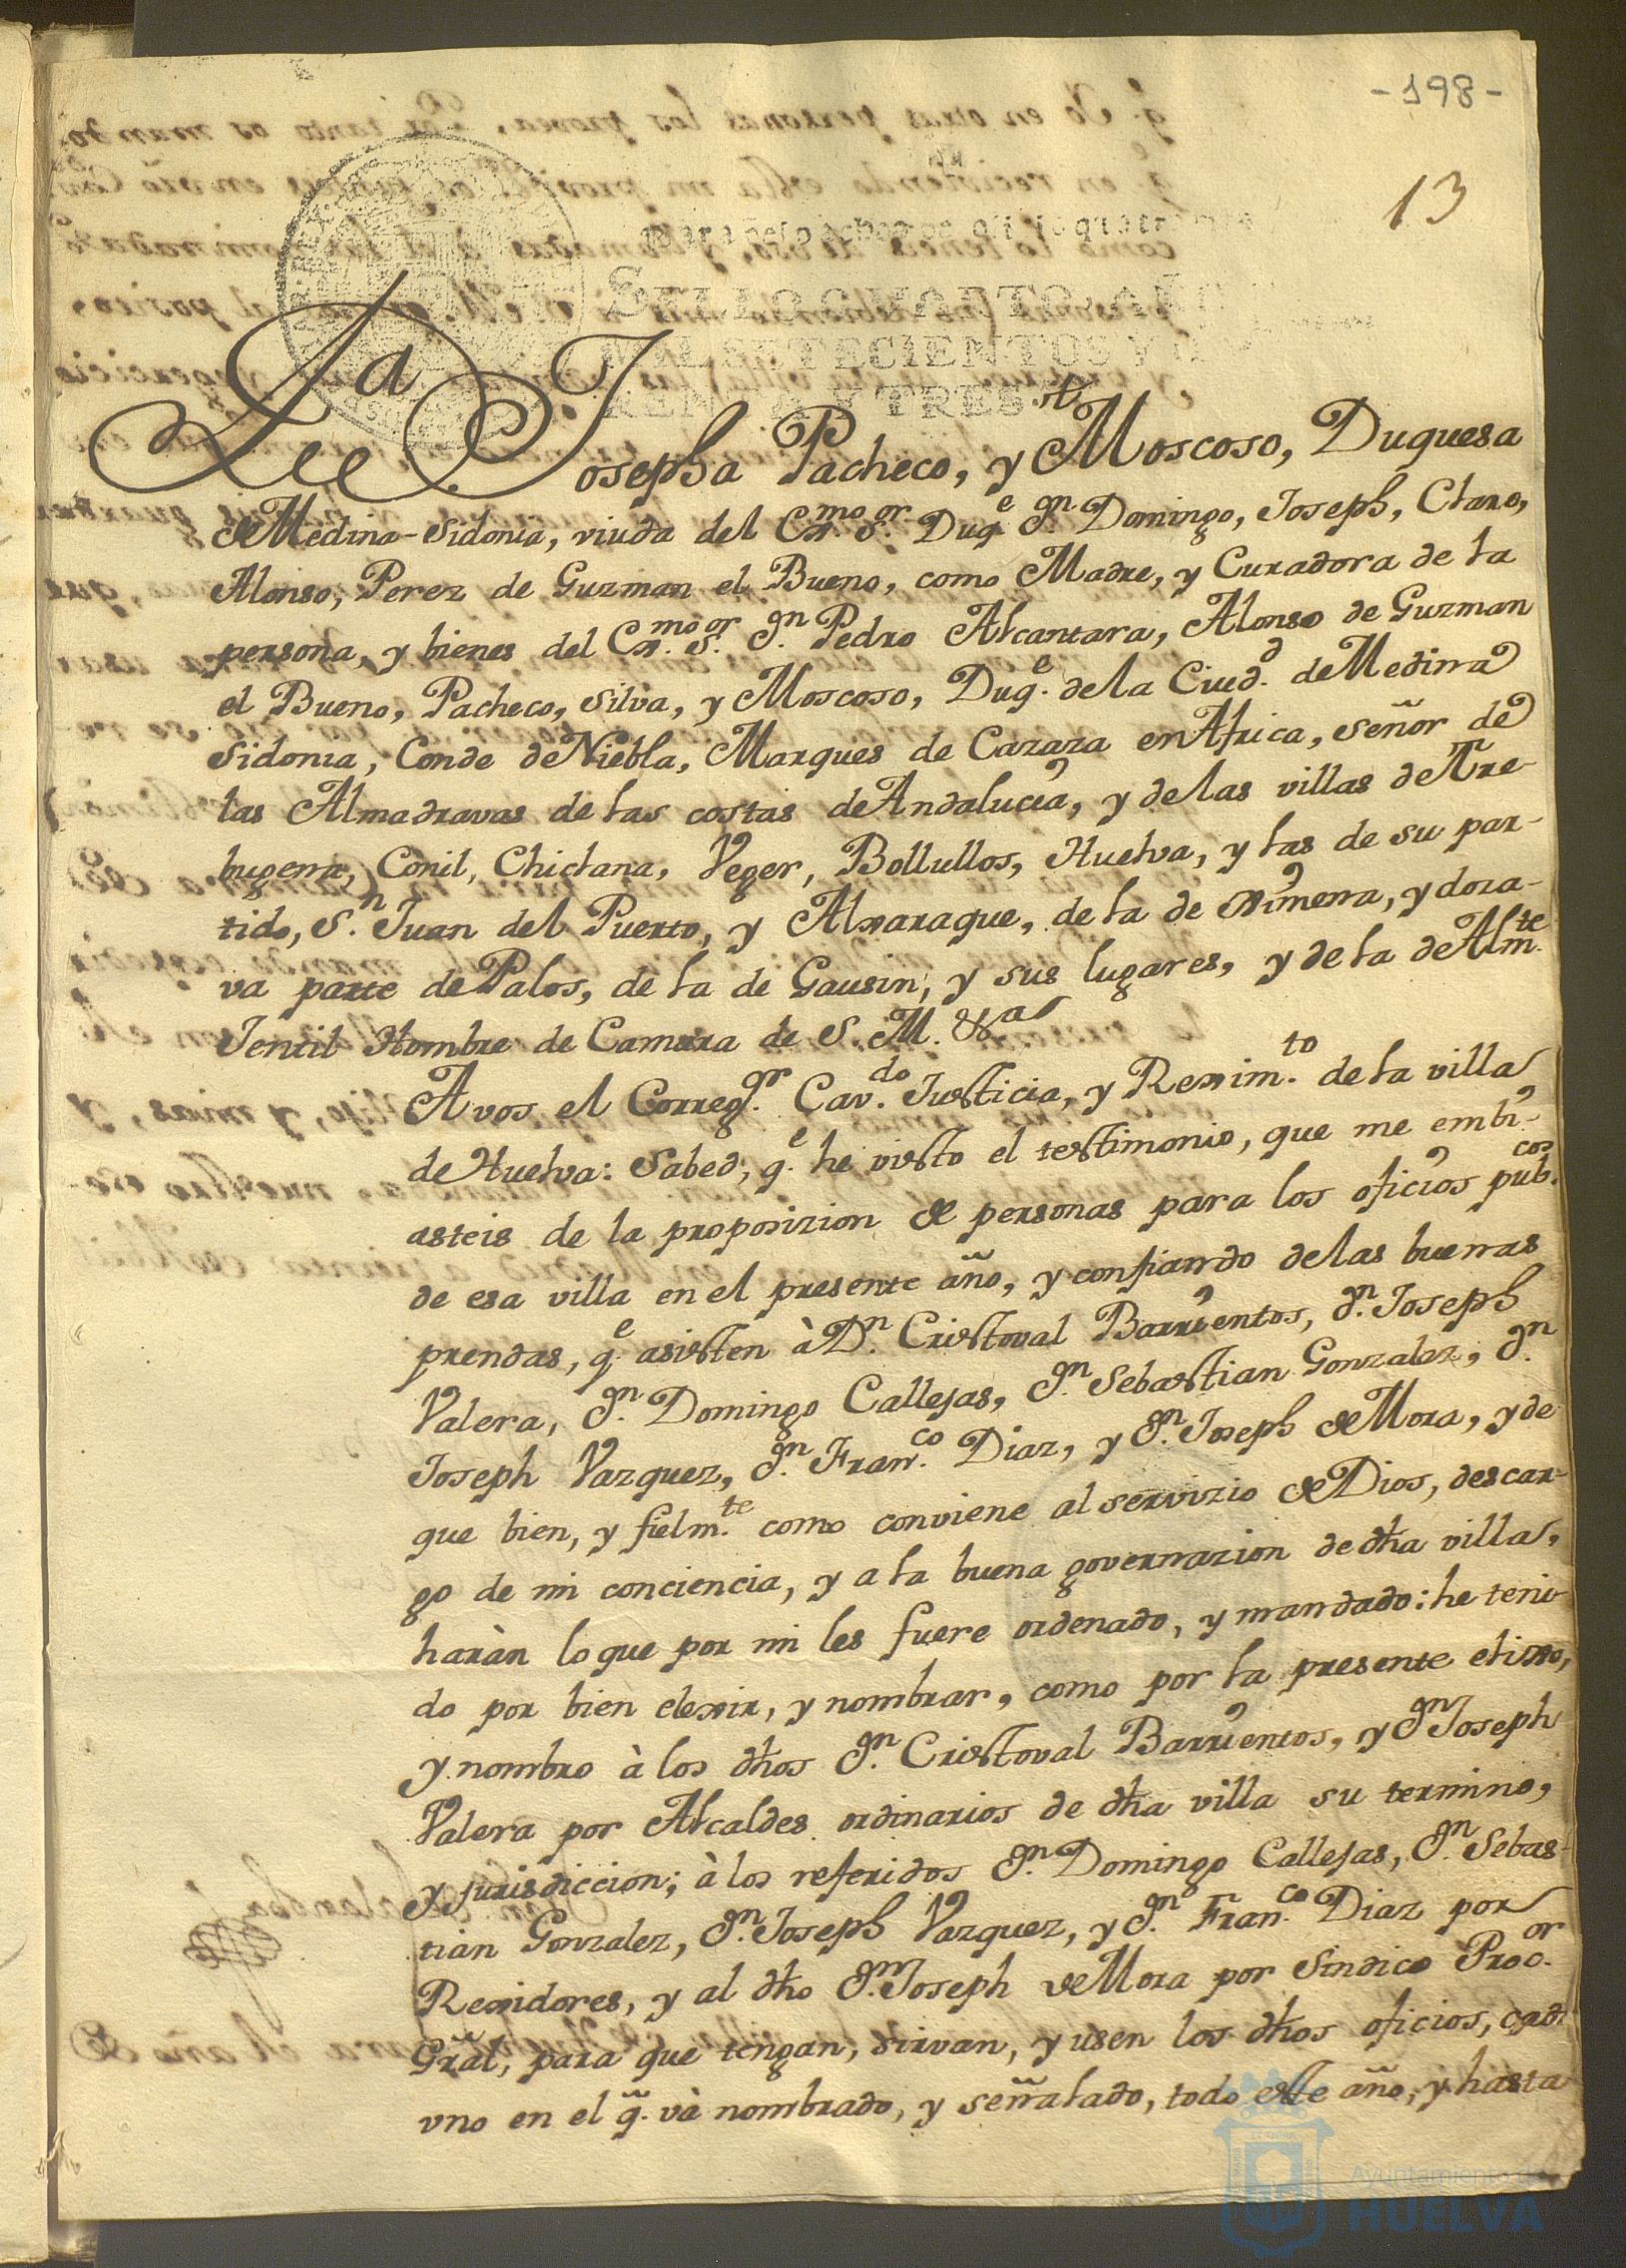 - 198 -
13
SELLO QUARTO, AÑO
MIL SETECIENTOS Y QUA
RENTA Y TRES.
Da Josepha Pacheco, y Moscoso, Duquesa
de Medina-Sidonia, viuda del Ex.mo S.or Duq.e D.n Domingo, Joseph, Claro,
Alonso, Perez de Guzman el Bueno, como Madre, y Curadora de la
persona, y bienes del Ex.mo S.or D.n Pedro Alcantara, Alonso de Guzman
el Bueno, Pacheco, Silva, y Moscoso, Duq.e de la Ciud.d de Medina
Sidonia, Conde de Niebla, Marques de Cazaza en Africa, Señor de
las Almadravas de las costas de Andalucia, y de las villas de Tre-
bugena, Conil, Chiclana, Veger, Bollullos, Huelva, y las de su par-
tido, S.n Juan del Puerto, y Alxaraque, de la de Ximena, y doza-
va parte de Palos, de la de Gausin, y sus lugares, y de la de Alm.te
Jentil Hombre de Camara de S. M. &a
A vos el Correg.or Cav.do Justicia, y Rexim.to de la villa
de Huelva: Sabed, q.e he visto el testimonio, que me embi-
asteis de la proposizion de personas para los oficios pub.cos
de esa villa en el presente año, y confiando de las buenas
prendas, q.e asisten à D.n Cristoval Barrientos, D.n Joseph
Valera, D.n Domingo Callejas, D.n Sebastian Gonzalez, D.n
Joseph Vazquez, D.n Fran.co Diaz, y D.n Joseph de Mora, y de
que bien, y fielm.te como conviene al servizio de Dios, descar-
go de mi conciencia, y a la buena governazion de dha villa,
haràn lo que por mi les fuere ordenado, y mandado: he teni-
do por bien elexir, y nombrar, como por la presente elixo,
y nombro à los dhos D.n Cristoval Barrientos, y D.n Joseph
Valera por Alcaldes ordinarios de dha villa su termino,
y jurisdiccion; à los referidos D.n Domingo Callejas, D.n Sebas-
tian Gonzalez, D.n Joseph Vazquez, y D.n Fran.co Diaz por
Rexidores, y al dho D.n Joseph de Mora por Sindico Proc.or
Gral, para que tengan, sirvan, y usen los dhos oficios, cad.
vno en el q. và nombrado, y señalado, todo este año, y hasta
Ayuntamiento de
HUELVA